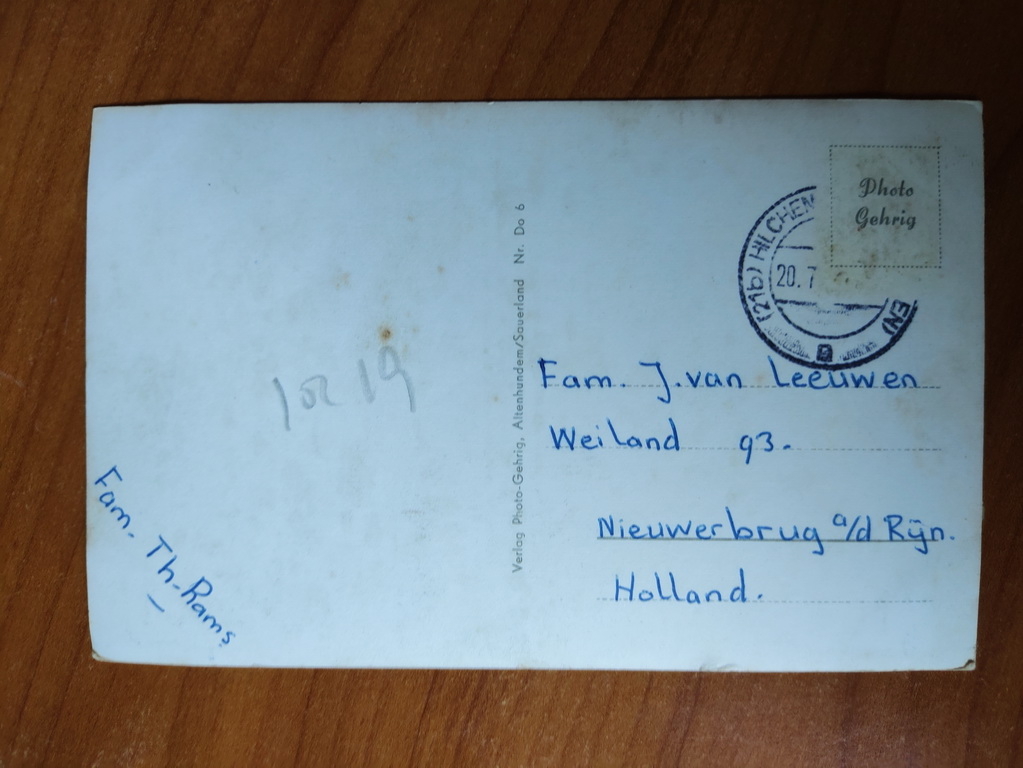 Photo
Gehrig
(21b) HILCHEN
20.7
EN)
a
Verlag Photo-Gehrig, Altenhundem/Sauerland Nr. Do 6
Fam. J. van Leeuwen
Weiland 93.
Nieuwerbrug a/d Rijn.
Holland.
Fam. Th. Rams